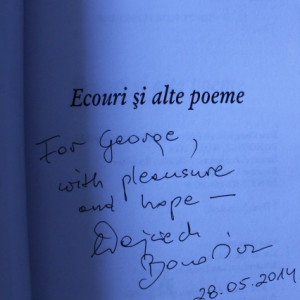 Ecouri şi alte poeme
For George,
with pleausure
and hope —
Wojciech
Bonowicz
28.05.2014